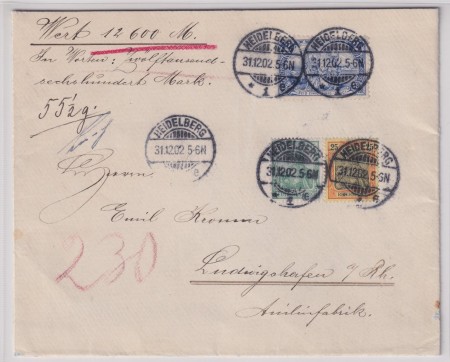 Wert 12 600 M.
In Worten: Zwölftausend-
sechshundert Mark.
55½g.
HEIDELBERG
31.12.02.5-6N
* 1 e
HEIDELBERG
31.12.02.5-6N
* 1 e
HEIDELBERG
31.12.02.5-6N
e
HEIDELBERG
31.12.02.5-6N
* 1 e
HEIDELBERG
31.12.02.5-6N
* 1 e
25
Herrn
Emil
230
Ludwigshafen a/Rh.
Anilinfabrik.